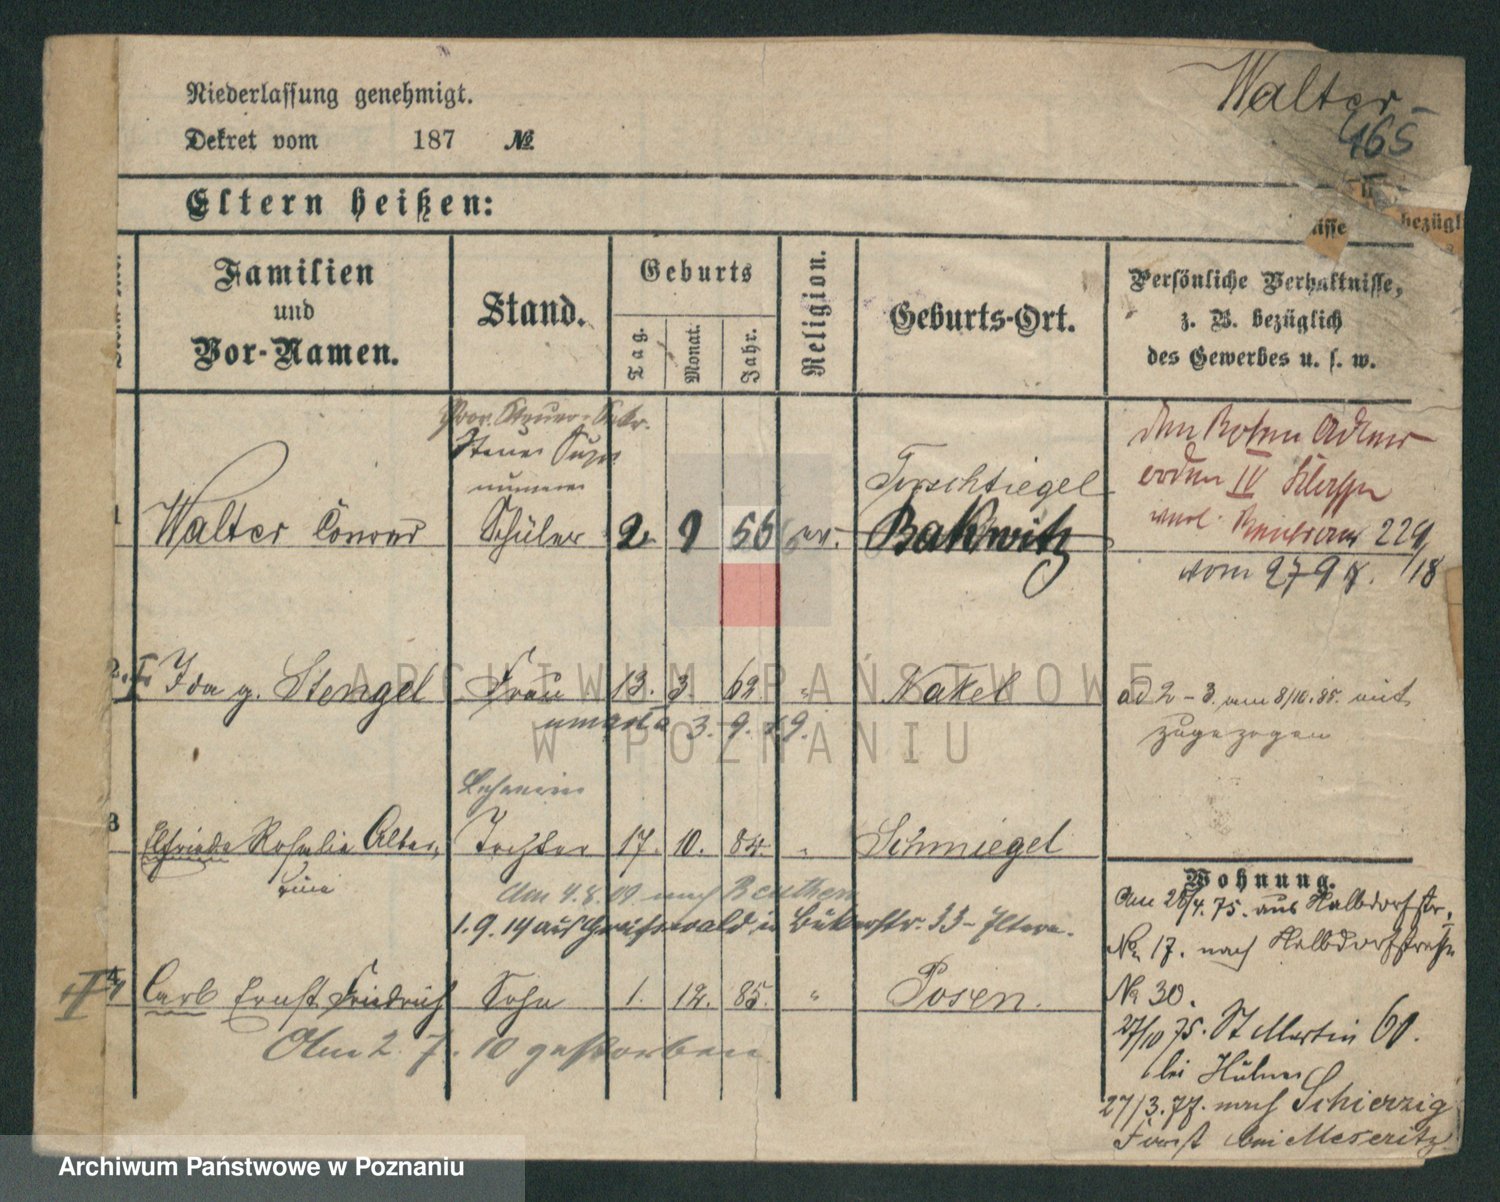 Walter
465
Niederlassung genehmigt.
Dekret vom 187 №
Eltern heißen:
bezügl
Familien und Vor-Namen.
Stand.
Geburts
Tag.
Monat.
Jahr.
Religion.
Geburts-Ort.
Persönliche Verhältnisse,
z. B. bezüglich
des Gewerbes u. s. w.
Steuer Super
numerar
1 Walter Conrad Schüler 2 9 56 ev.
Tirschtiegel
Bakwitz
den Rothen Adler
orden IV Klasse
vom 27 9 18.
2. Ida g. Stengel Frau 13. 3 62 " Nakel
ad 2-3. am 8/10.85. mit
zugezogen
3. 9. 19.
Lehrerin
3 Elfriede Rosalie Alber, Tochter 17. 10. 84. " Schmiegel
tine
Am 4.8.09 nach Beuthen
1.9.19 aus Greifswald Bukerstr. 33 - Eltern.
4 Carl Ernst Friedrich Sohn 1. 12. 85. " Posen.
Am 2. 7. 10 gestorben
Wohnung.
Am 28/4.75. aus Halbdorfstr.
No 17. nach Halbdorfstraße
No 30.
27/10 75. St Martin 60.
bei Hübner
27/3.77. nach Schierzig
Forst bei Meseritz
ARCHIWUM PAŃSTWOWE
W POZNANIU
Archiwum Państwowe w Poznaniu